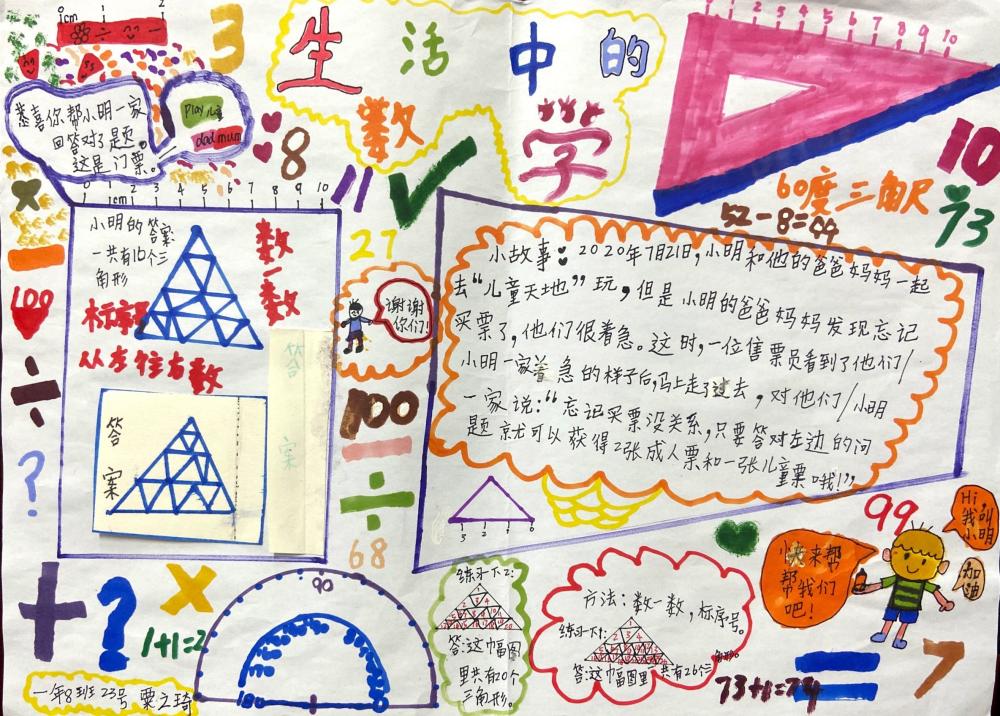 1cm 1 2
3
生活中的
数学
1 2 3 4 5 6 7 8 9 10
恭喜你帮小明一家
回答对了题。
这是门票。
play 儿童
dad mum
8
11
10
60度三角尺
52-8=44
73
0 1cm 2 3 4 5 6 7 8 9 10
小明的答案
一共有16个三
角形
数一数
标序号
从左往右数
答案
答案
27
谢谢
你们!
100
100
68
小故事: 2020年7月21日,小明和他的爸爸妈妈一起
去“儿童天地”玩,但是小明的爸爸妈妈发现忘记
买票了,他们很着急。这时,一位售票员看到了他们/
小明一家着急的样子后,马上走了过去,对他们/小明
一家说:“忘记买票没关系,只要答对左边的问
题就可以获得2张成人票和一张儿童票哦!”,
3 2 1 0
99
Hi,
我叫
小明
加油
小快来帮
帮我们
吧!
?
+ ? ×
1+1=2
90
180 0
一年8班 23号 栗之琦
练习一下2:
答:这幅图
里共有20个
三角形。
方法:数一数,标序号。
练习一下1:
答:这幅图里一共有26个三
角形。
73+6=79
=
7